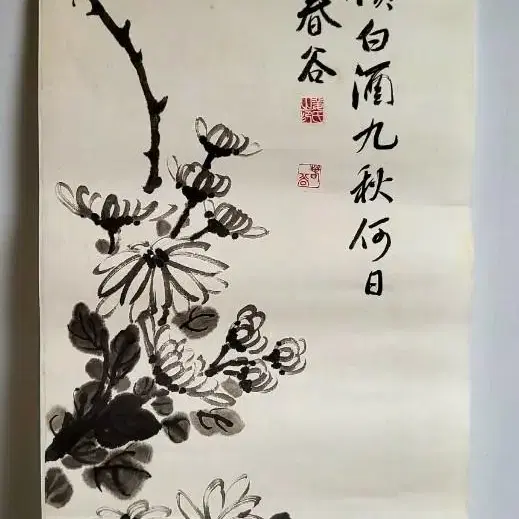 白酒九秋何日
春谷